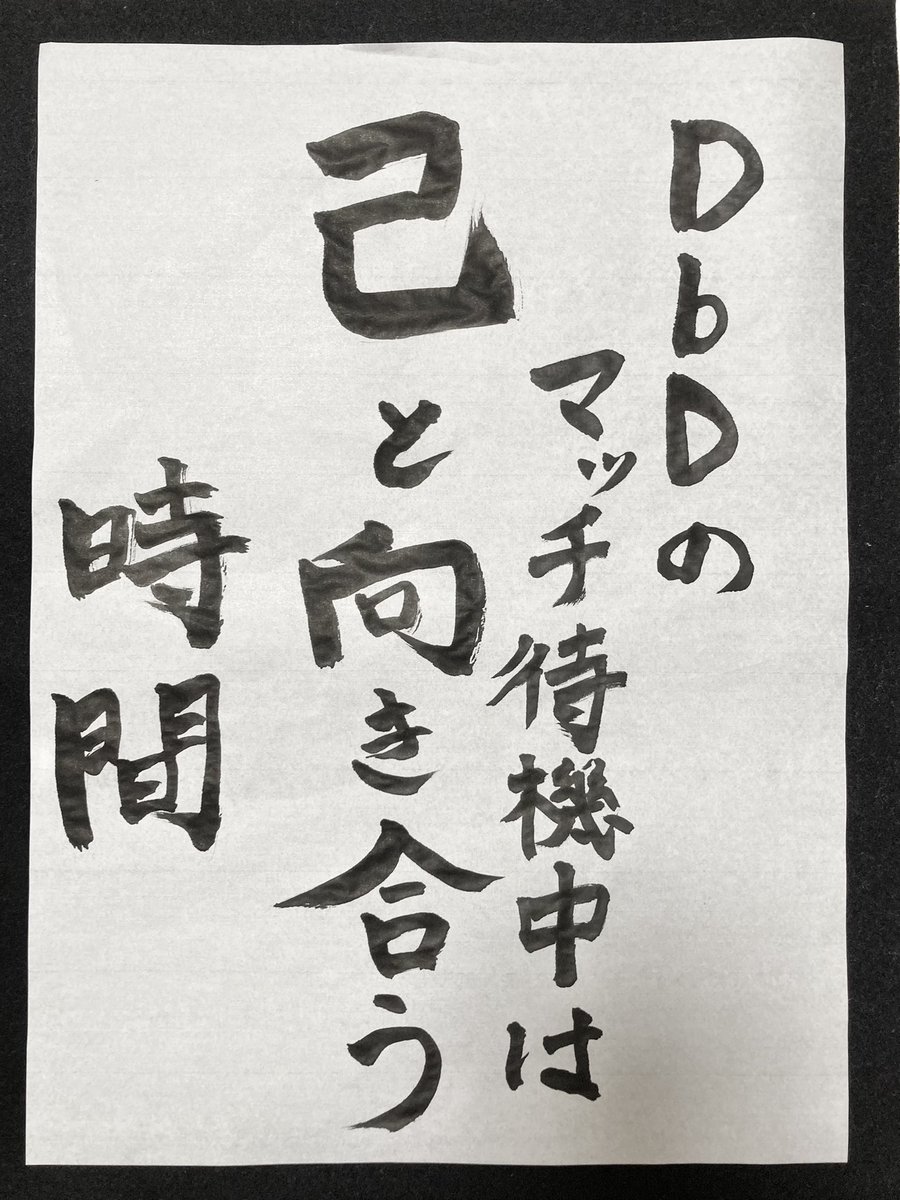 DbDの
マッチ待機中は
己と向き合う
時間